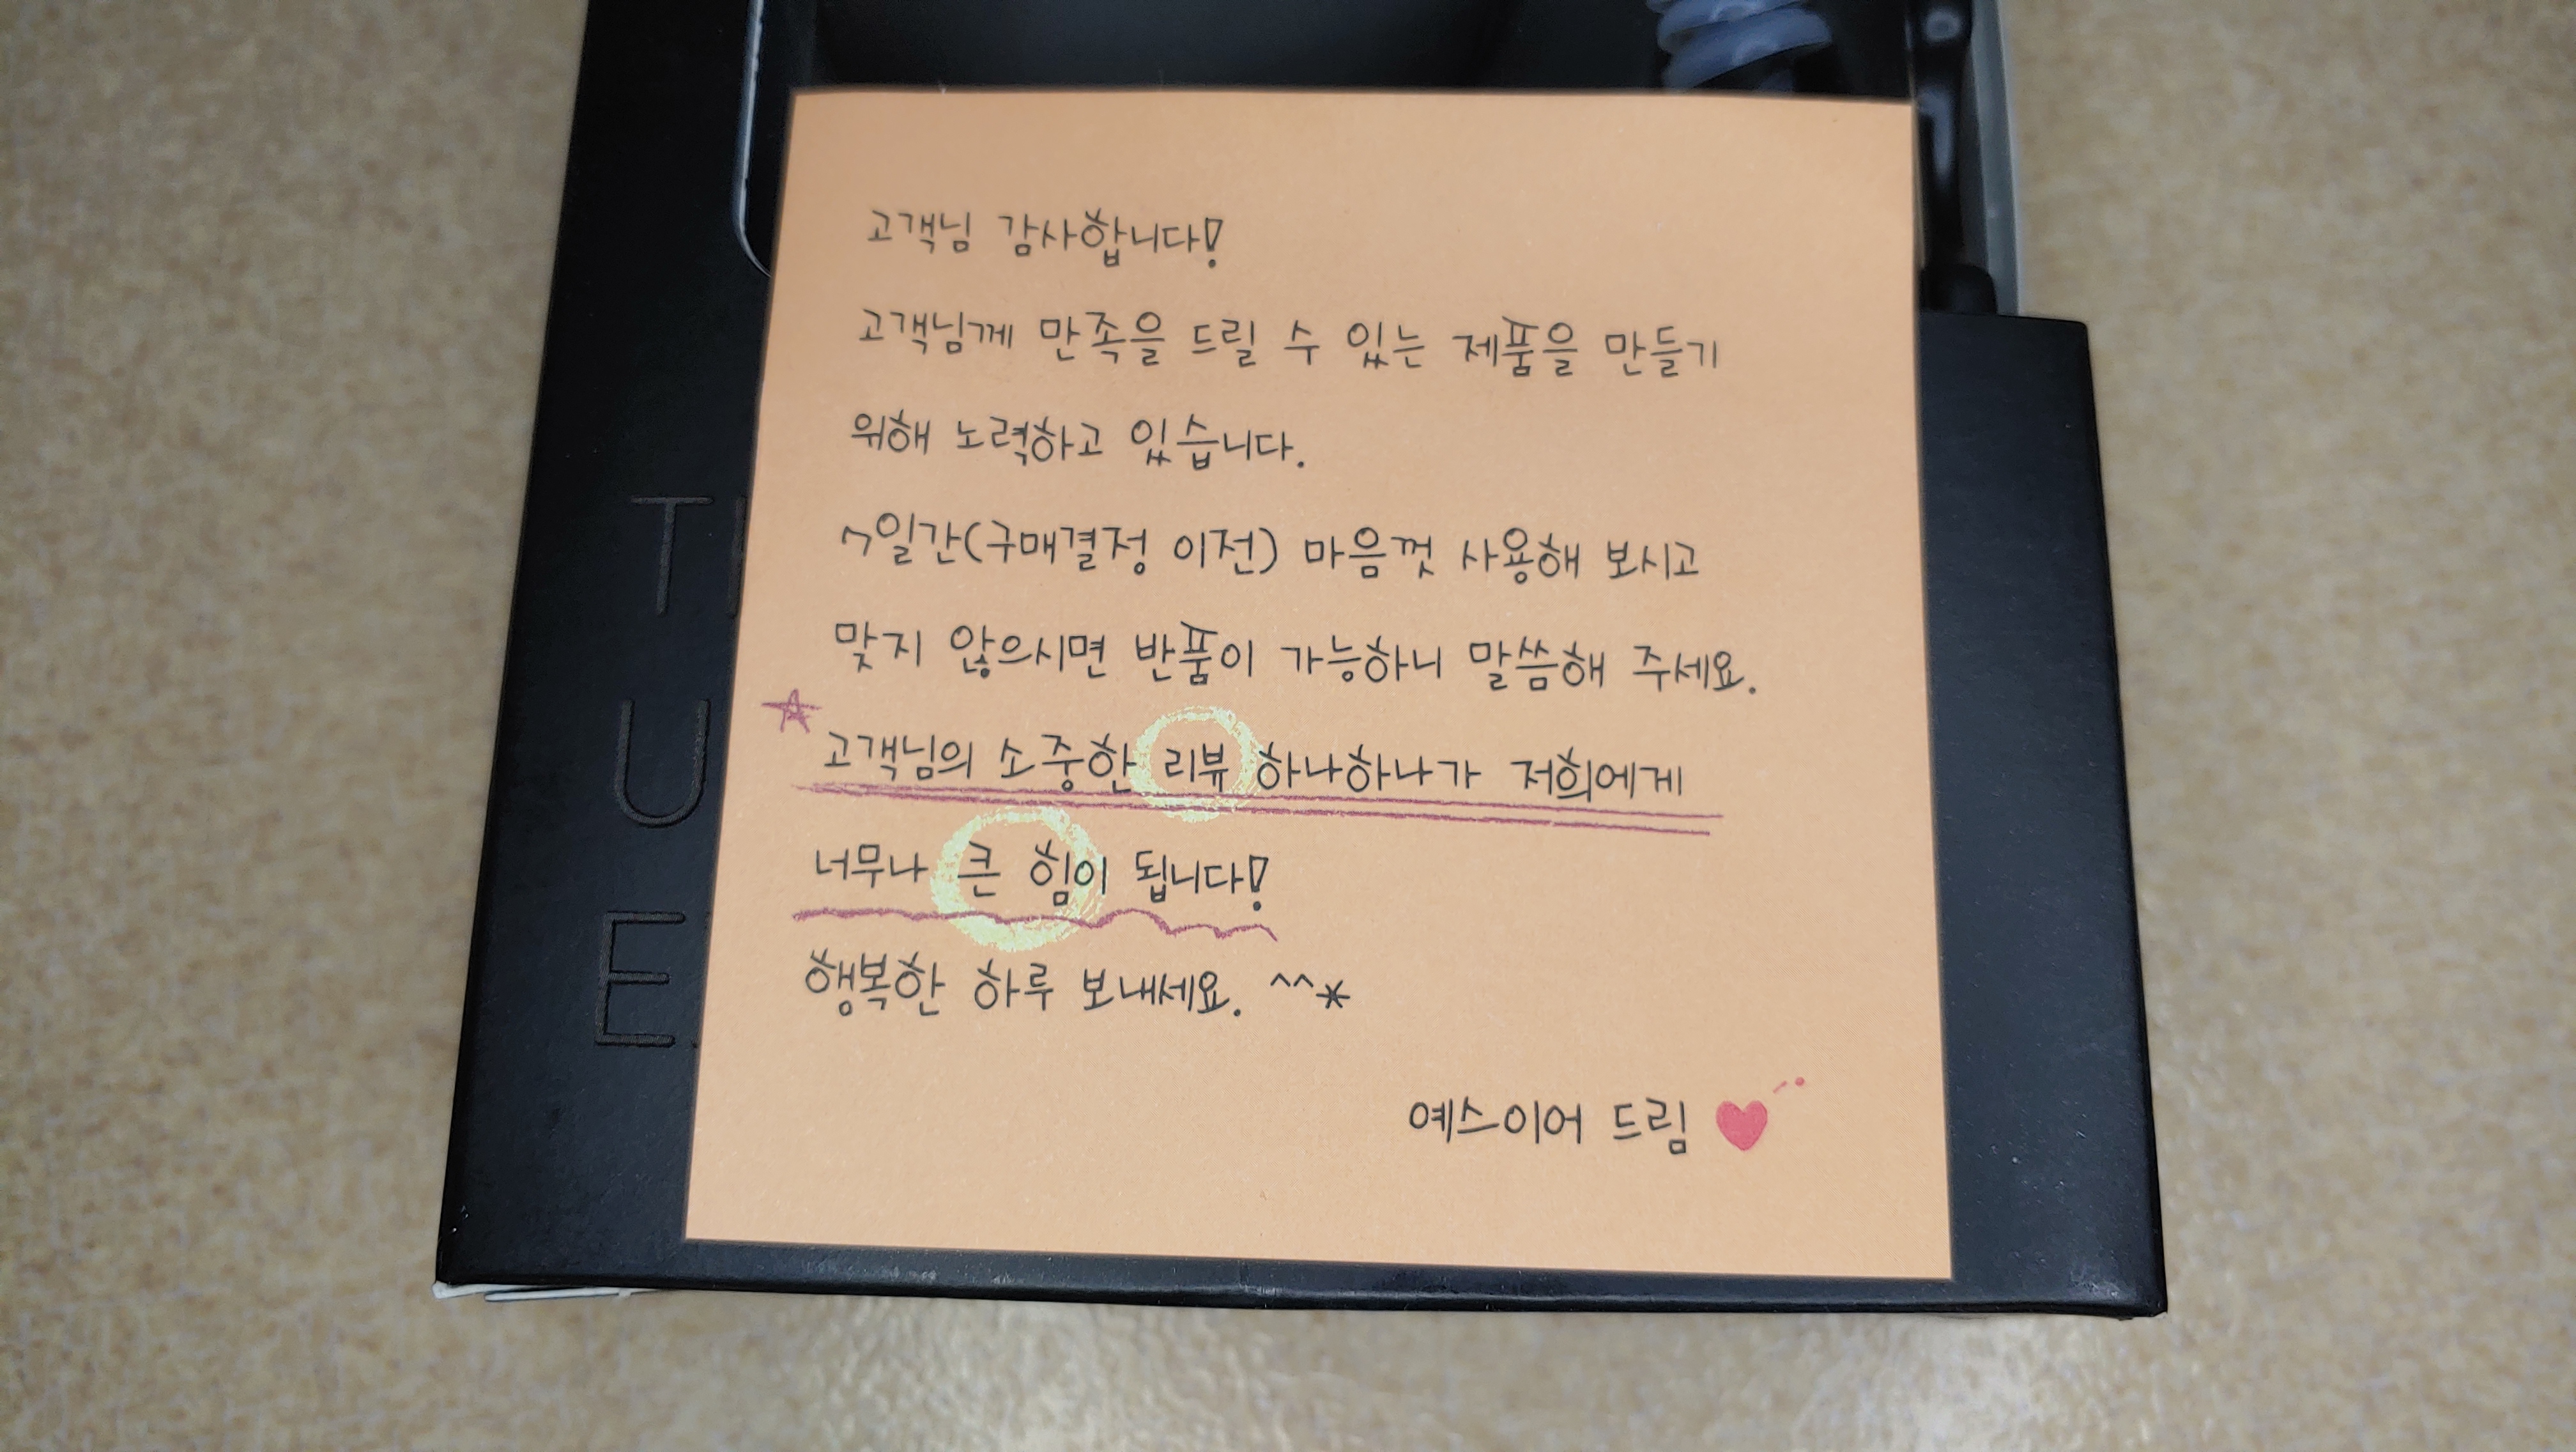 고객님 감사합니다!
고객님께 만족을 드릴 수 있는 제품을 만들기
위해 노력하고 있습니다.
7일간(구매결정 이전) 마음껏 사용해 보시고
맞지 않으시면 반품이 가능하니 말씀해 주세요.
☆
고객님의 소중한 리뷰 하나하나가 저희에게
너무나 큰 힘이 됩니다!
행복한 하루 보내세요. ^^*
예스이어 드림 ♥
U